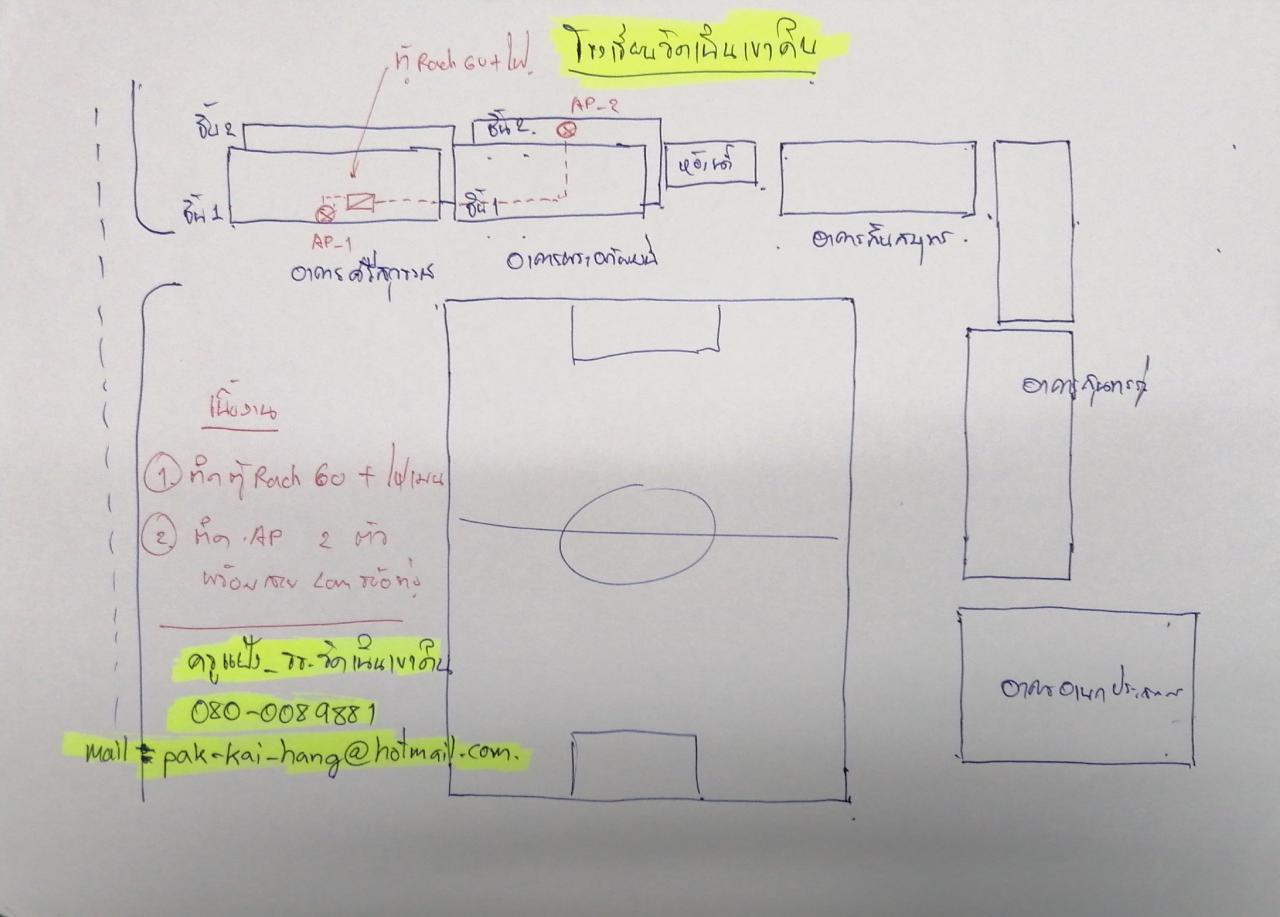 โรงเรียนวัดเนินเขาดิน
ตู้ Rack 6U + ไฟ
AP-2
ชั้น 2
ชั้น 2.
ห้องน้ำ
ชั้น 1
ชั้น 1
AP-1
อาคารศรีสุวรรณ
อาคารพระอภัยมณี
อาคารสินสมุทร
อาคารสุนทรภู่
เนื้องาน
① ติดตู้ Rack 6U + ไฟเมน
② ติด AP 2 ตัว
พร้อมสาย Lan ร้อยท่อ
ครูแป้ง_รร.วัดเนินเขาดิน
080-0089881
mail = pak-kai-hang@hotmail.com.
อาคารอเนกประสงค์